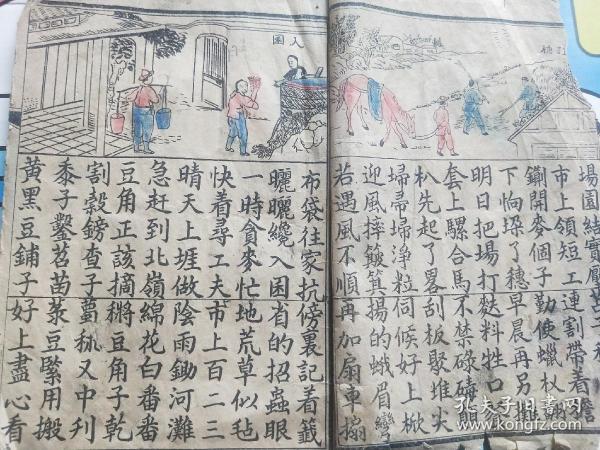 入囤
場園結實壓苫
市上領短工連割帶着擔
鍘開麥個子勤使蠟杈翻
下晌垜了穗早晨再另攤
明日把場打麩料牲口
套上騾合馬不禁碌碡
杴先起了畧刮板聚堆尖
掃帚掃淨粒伺候好上杴
迎風摔簸箕揚的蛾眉彎
若遇風不順再加扇車搧
布袋往家抗傍裏記着籤
曬曬纔入囤省的招蟲眼
一時貪麥忙地荒草似毡
快着尋工夫市上百二三
晴天上堐做陰雨鋤河灘
急赶到北嶺綿花白番番
豆角正該摘豆角子乾
割穀鎊查子秫又中利
黍子鏨苕苗菉豆緊用搬
黃黑豆鋪子好上盡心看
孔夫子旧書网